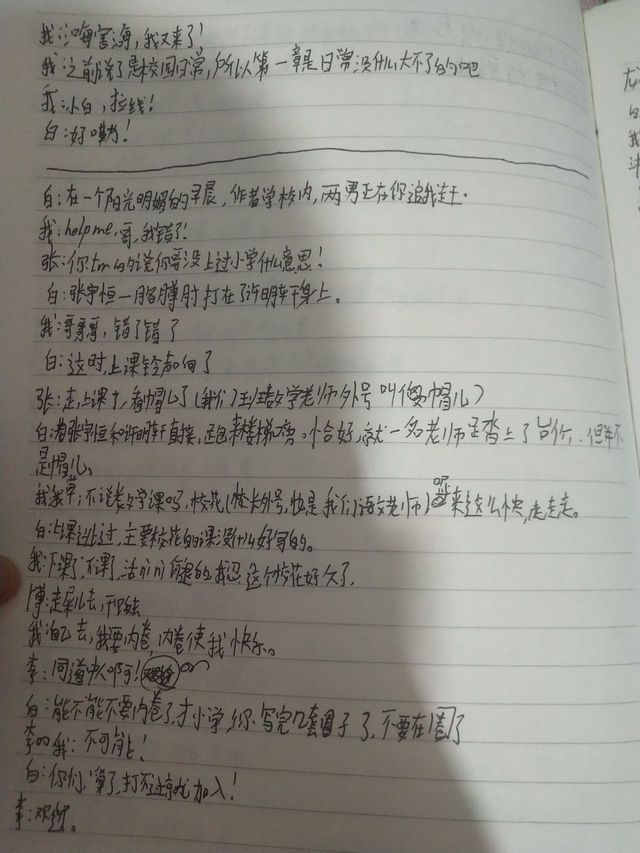 我:嗨害海,我又来了!
我:之前说了是校园日常,所以第一章是日常没什么大不了的吧
我:小白,拉线!
白:好嘞!
白:在一个阳光明媚的早晨,作者学校内,两男正在你追我赶.
我:help me,哥,我错了!
张:你tm的说你哥没上过小学什么意思!
白:张宇恒一胳膊肘打在了许明轩身上。
我:哥哥哥,错了错了
白:这时,上课铃声响了
张:走,上课去,看帽儿了(我们班数学老师外号叫傻帽儿)
白:着张宇恒和许明轩直接 恰好,就一名老师正踏上了台阶,但并不
是帽儿。
我:我草,不说数学课吗,校花(外号,也是我们语文老师)来这么快,走走走。
白:课过,主要校花的课没什么好写的。
我:下课了,下课了,活的我忍这个校花好久了,
博:走屎儿去,
我:自己去,我要内卷,内卷使我快乐。
李:同道中人啊!
白:能不能不要内卷了,才小学,你写完几套圈子了,不要在圈了
李和我:不可能!
白:你们,算了,打不过就加入!
李:欢迎。